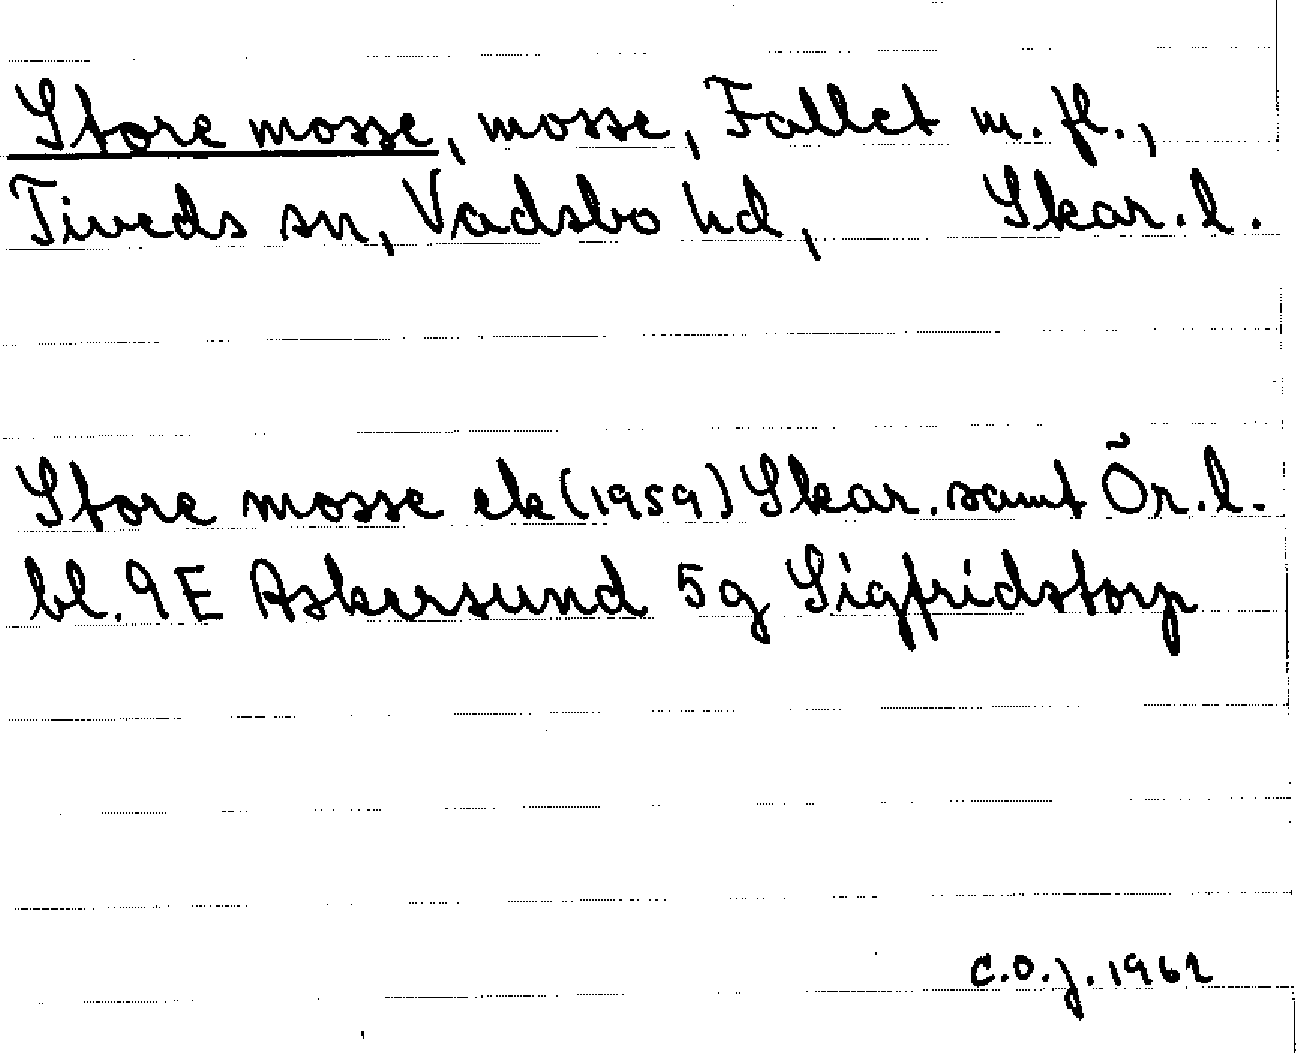 Store mosse, mosse, Fallet m. fl.,
Tiveds sn, Vadsbo hd, Skar. l.
Store mosse ek (1959) Skar. samt Ör. l.
bl. 9E Askersund 5g Sigfridstorp
C.O.J. 1962